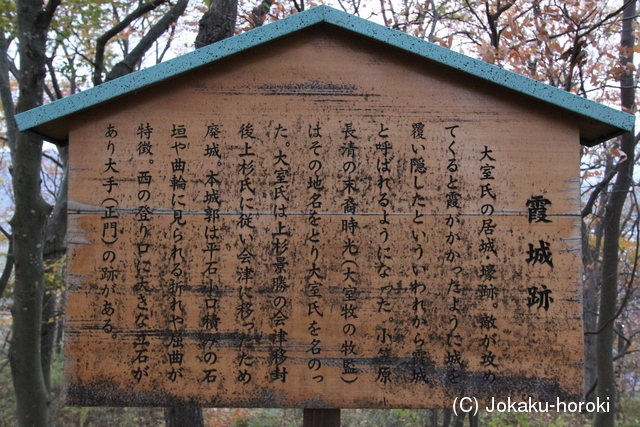 霞城跡
大室氏の居城・壕跡。敵が攻め
てくると霞がかかったように城を
覆い隠したといういわれから霞城
と呼ばれるようになった。小笠原
長清の末裔時光（大室牧の牧監）
はその地名をとり大室氏を名のっ
た。大室氏は上杉景勝の会津移封
後上杉氏に従い会津に移ったため
廃城。本城郭は平石小口積みの石
垣や曲輪に見られる折れや屈曲が
特徴。西の登り口に大きな立石が
あり大手（正門）の跡がある。
(C) Jokaku-horoki